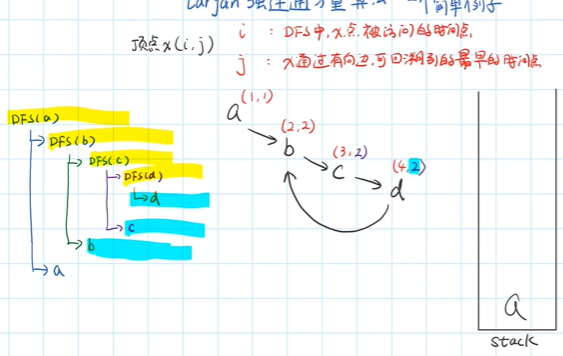 Tarjan 强连通分量算法 一个简单例子
顶点x(i,j)
i : DFS中,x点被访问的时间点
j : x通过有向边,可回溯到的最早的时间点
DFS(a)
DFS(b)
DFS(c)
DFS(d)
d
c
b
a
a (1,1)
b (2,2)
c (3,2)
d (4,2)
a
stack